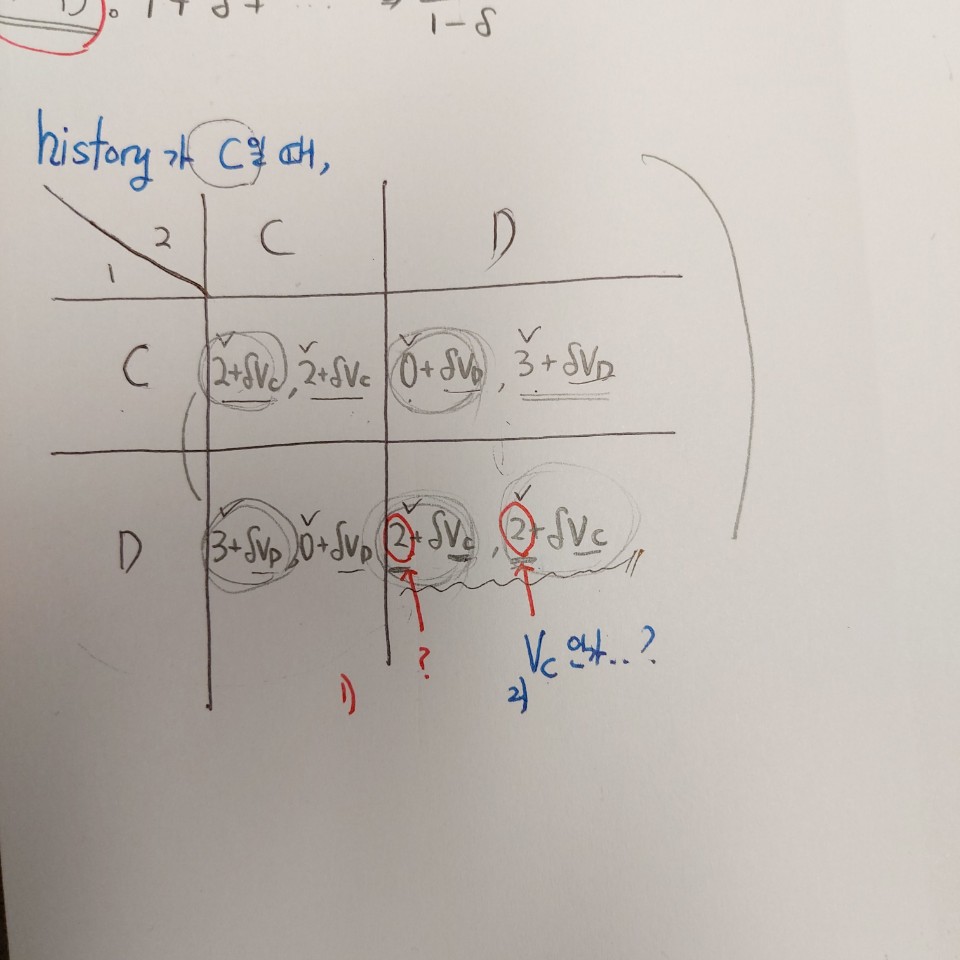 1 + δ + ...
1-δ
history가 C일 때,
2 C D
1
C 2+δVc, 2+δVc 0+δVD, 3+δVD
D 3+δVD, 0+δVD 2+δVc, 2+δVc
?
Vc 왜...?
1)
2)